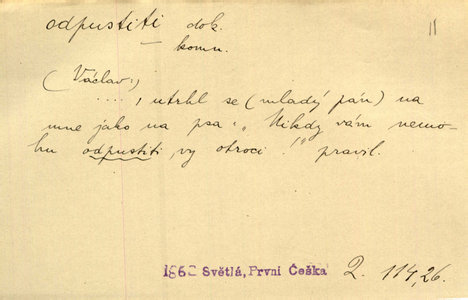 odpustiti dok. 11
— komu.
(Václav:)
...., utrhl se (mladý pán) na
mne jako na psa, „Nikdy vám nemo-
hu odpustiti, vy otroci!" pravil.
1862 Světlá, První Češka 2. 114, 26.